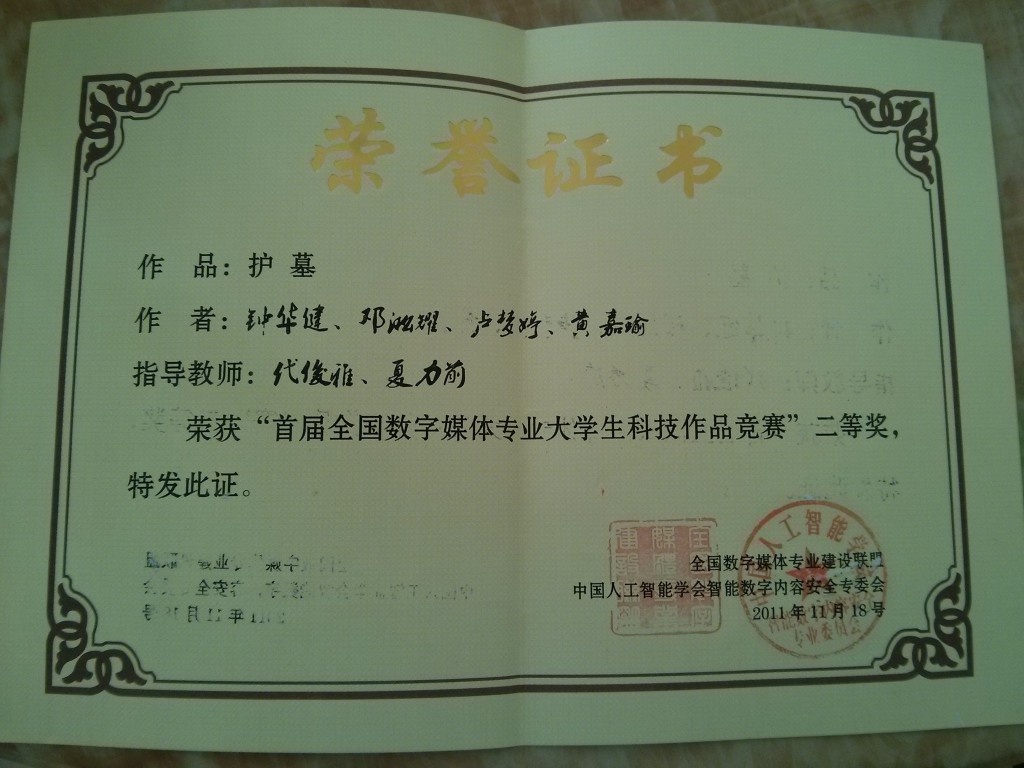 荣誉证书
作 品：护 墓
作 者：钟华健、邓泓耀、卢梦婷、黄嘉瑜
指导教师：代俊雅、夏力前
荣获“首届全国数字媒体专业大学生科技作品竞赛”二等奖，
特发此证。
全国数字媒体专业建设联盟
中国人工智能学会智能数字内容安全专委会
2011年11月18号